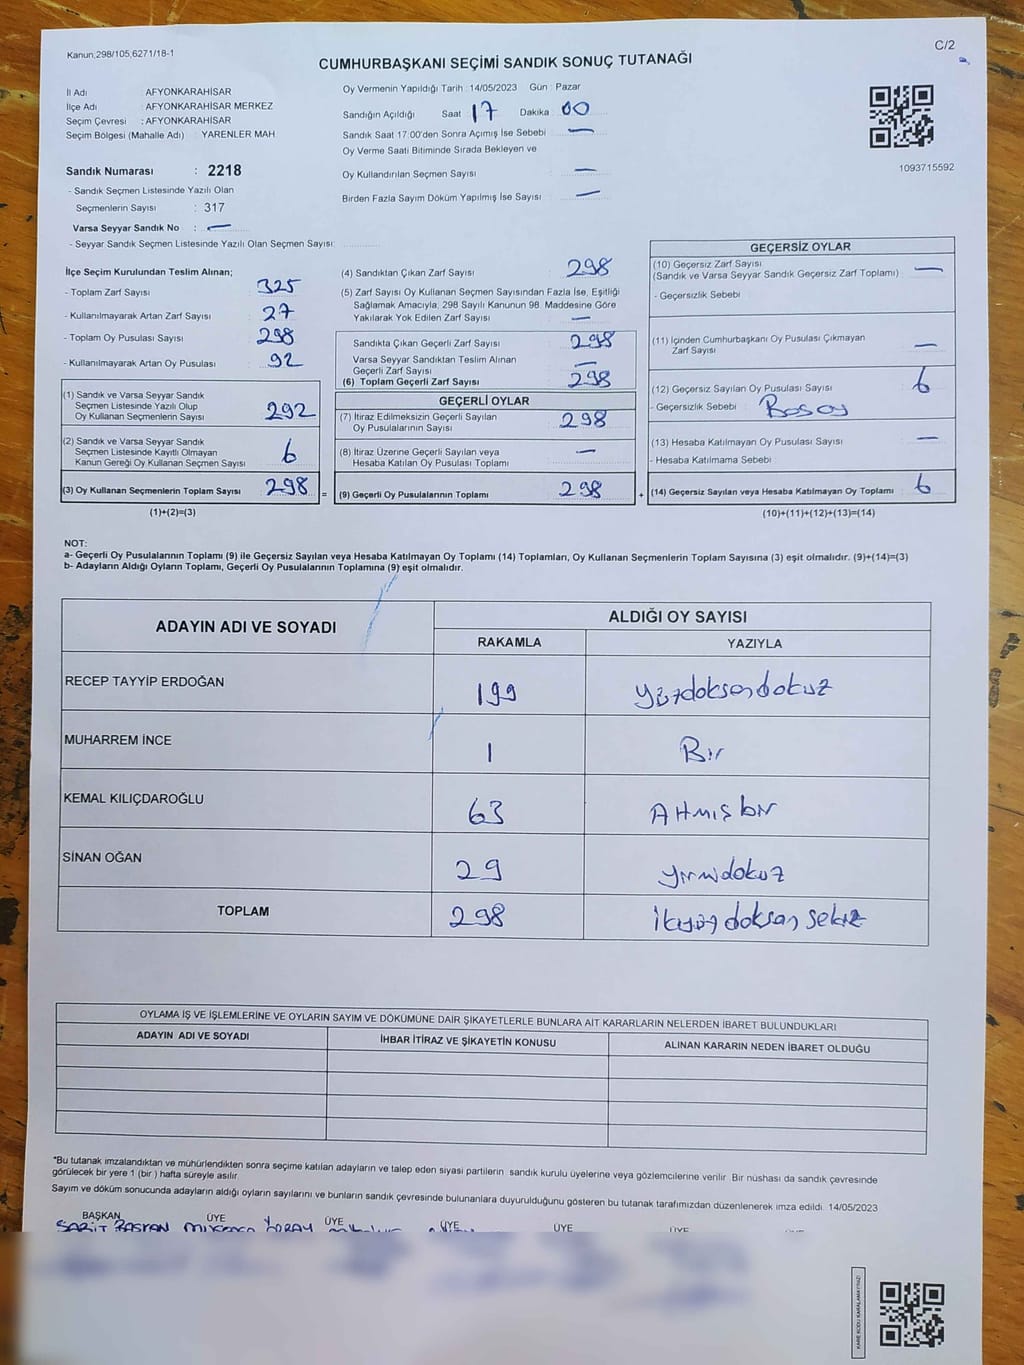 Kanun;298/105,6271/18-1
C/2
CUMHURBAŞKANI SEÇİMİ SANDIK SONUÇ TUTANAĞI
İl Adı AFYONKARAHİSAR
İlçe Adı : AFYONKARAHİSAR MERKEZ
Seçim Çevresi : AFYONKARAHİSAR
Seçim Bölgesi (Mahalle Adı) YARENLER MAH
Sandık Numarası : 2218
- Sandık Seçmen Listesinde Yazılı Olan
Seçmenlerin Sayısı : 317
Varsa Seyyar Sandık No : —
- Seyyar Sandık Seçmen Listesinde Yazılı Olan Seçmen Sayısı:
Oy Vermenin Yapıldığı Tarih :14/05/2023 Gün : Pazar
Sandığın Açıldığı Saat 17 Dakika 00
Sandık Saat 17:00'den Sonra Açımış İse Sebebi —
Oy Verme Saati Bitiminde Sırada Bekleyen ve
Oy Kullandırılan Seçmen Sayısı —
Birden Fazla Sayım Döküm Yapılmış İse Sayısı —
1093715592
İlçe Seçim Kurulundan Teslim Alınan;
- Toplam Zarf Sayısı 325
- Kullanılmayarak Artan Zarf Sayısı 27
- Toplam Oy Pusulası Sayısı 298
- Kullanılmayarak Artan Oy Pusulası 92
(1) Sandık ve Varsa Seyyar Sandık
Seçmen Listesinde Yazılı Olup
Oy Kullanan Seçmenlerin Sayısı 292
(2) Sandık ve Varsa Seyyar Sandık
Seçmen Listesinde Kayıtlı Olmayan
Kanun Gereği Oy Kullanan Seçmen Sayısı 6
(3) Oy Kullanan Seçmenlerin Toplam Sayısı 298 =
(1)+(2)=(3)
(4) Sandıktan Çıkan Zarf Sayısı 298
(5) Zarf Sayısı Oy Kullanan Seçmen Sayısından Fazla İse, Eşitliği
Sağlamak Amacıyla, 298 Sayılı Kanunun 98. Maddesine Göre
Yakılarak Yok Edilen Zarf Sayısı —
Sandıkta Çıkan Geçerli Zarf Sayısı 298
Varsa Seyyar Sandıktan Teslim Alınan
Geçerli Zarf Sayısı —
(6) Toplam Geçerli Zarf Sayısı 298
GEÇERLİ OYLAR
(7) İtiraz Edilmeksizin Geçerli Sayılan
Oy Pusulalarının Sayısı 298
(8) İtiraz Üzerine Geçerli Sayılan veya
Hesaba Katılan Oy Pusulası Toplamı —
(9) Geçerli Oy Pusulalarının Toplamı 298 +
GEÇERSİZ OYLAR
(10) Geçersiz Zarf Sayısı
(Sandık ve Varsa Seyyar Sandık Geçersiz Zarf Toplamı) —
- Geçersizlik Sebebi
(11) İçinden Cumhurbaşkanı Oy Pusulası Çıkmayan
Zarf Sayısı —
(12) Geçersiz Sayılan Oy Pusulası Sayısı 6
- Geçersizlik Sebebi : Boş oy
(13) Hesaba Katılmayan Oy Pusulası Sayısı —
- Hesaba Katılmama Sebebi
(14) Geçersiz Sayılan veya Hesaba Katılmayan Oy Toplamı 6
(10)+(11)+(12)+(13)=(14)
NOT:
a- Geçerli Oy Pusulalarının Toplamı (9) ile Geçersiz Sayılan veya Hesaba Katılmayan Oy Toplamı (14) Toplamları, Oy Kullanan Seçmenlerin Toplam Sayısına (3) eşit olmalıdır. (9)+(14)=(3)
b- Adayların Aldığı Oyların Toplamı, Geçerli Oy Pusulalarının Toplamına (9) eşit olmalıdır.
ADAYIN ADI VE SOYADI ALDIĞI OY SAYISI
RAKAMLA YAZIYLA
RECEP TAYYİP ERDOĞAN 199 yüzdoksandokuz
MUHARREM İNCE 1 Bir
KEMAL KILIÇDAROĞLU 63 Atmışbir
SİNAN OĞAN 29 yirmidokuz
TOPLAM 298 ikiyüz doksan sekiz
OYLAMA İŞ VE İŞLEMLERİNE VE OYLARIN SAYIM VE DÖKÜMÜNE DAİR ŞİKAYETLERLE BUNLARA AİT KARARLARIN NELERDEN İBARET BULUNDUKLARI
ADAYIN ADI VE SOYADI İHBAR İTİRAZ VE ŞİKAYETİN KONUSU ALINAN KARARIN NEDEN İBARET OLDUĞU
*Bu tutanak imzalandıktan ve mühürlendikten sonra seçime katılan adayların ve talep eden siyasi partilerin sandık kurulu üyelerine veya gözlemcilerine verilir. Bir nüshası da sandık çevresinde
görülecek bir yere 1 (bir) hafta süreyle asılır.
Sayım ve döküm sonucunda adayların aldığı oyların sayılarını ve bunların sandık çevresinde bulunanlara duyurulduğunu gösteren bu tutanak tarafımızdan düzenlenerek imza edildi. 14/05/2023
BAŞKAN ÜYE ÜYE ÜYE ÜYE ÜYE
KARE KODU KARALAMAYINIZ!